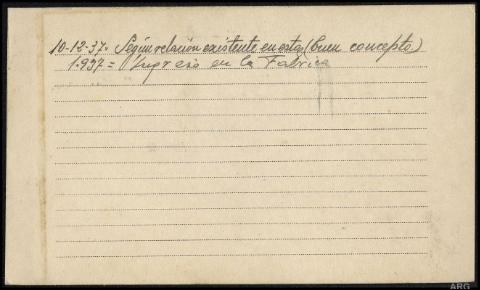 10-12-37= Según relación existente en esta (buen concepto)
1.937= Ingreso en la Fabrica
ARG